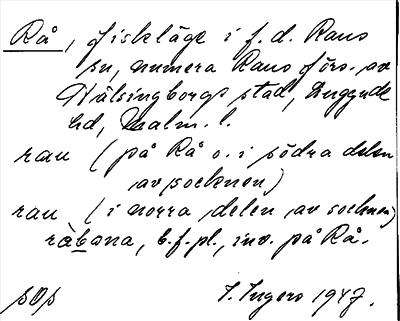 Rå, fiskläge i f.d. Raus
sn, numera Raus förs. av
Hälsingborgs stad, Luggude
hd, Malm. l.
rau (på Rå o. i södra delen
av socknen)
rau (i norra delen av socknen)
råbona, b.f.pl., inv. på Rå.
sOs
I. Ingers 1947.